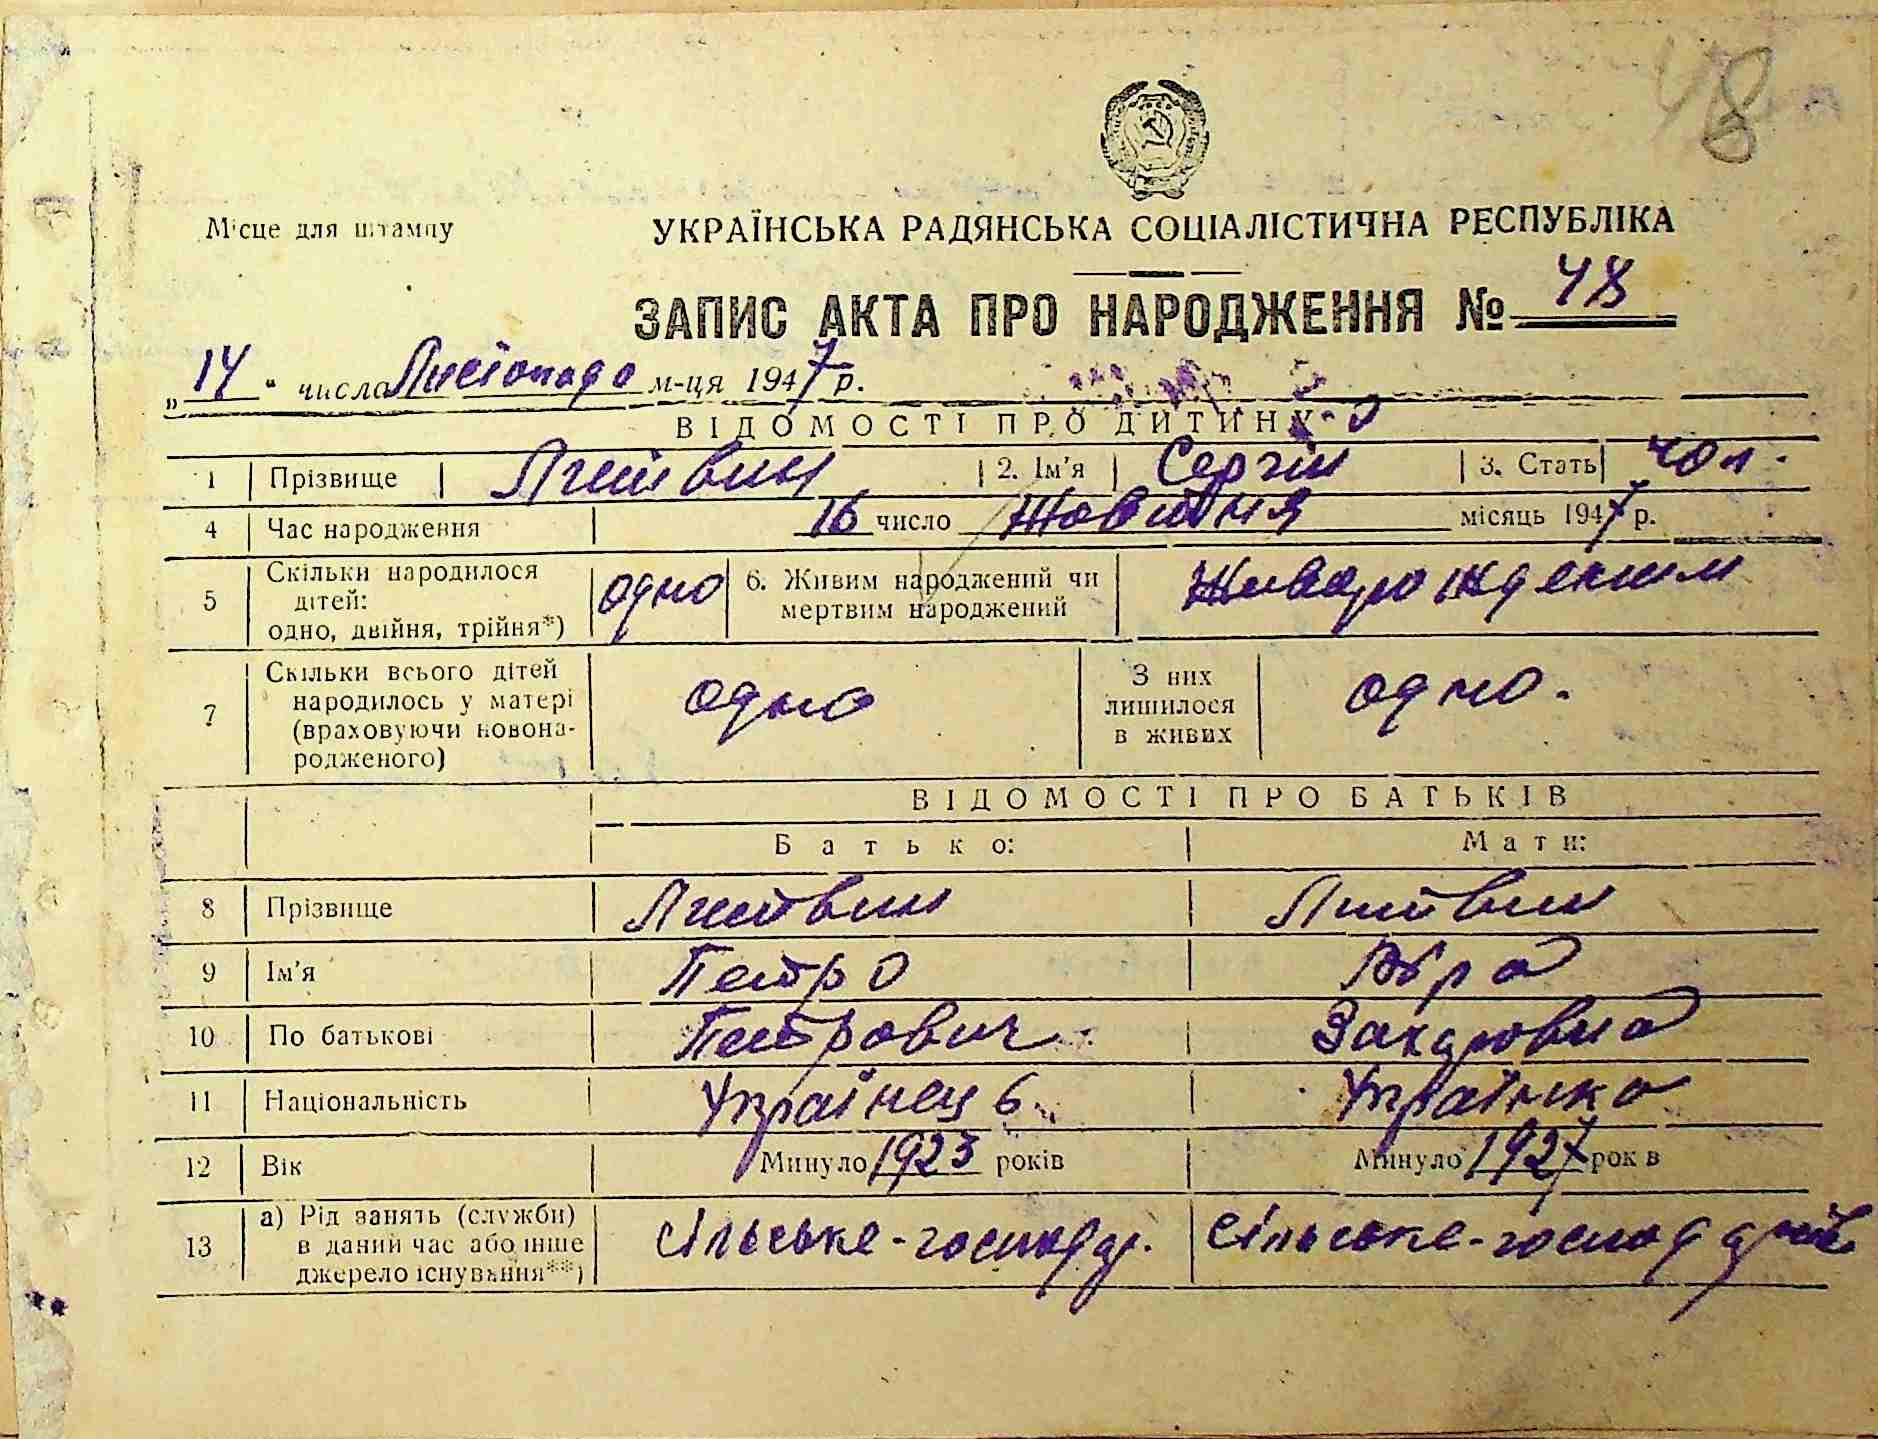 48
Місце для штампу
УКРАЇНСЬКА РАДЯНСЬКА СОЦІАЛІСТИЧНА РЕСПУБЛІКА
ЗАПИС АКТА ПРО НАРОДЖЕННЯ № 48
„14“ числа Листопада м-ця 1947 р.
ВІДОМОСТІ ПРО ДИТИНУ
1 Прізвище Литвин 2. Ім'я Сергій 3. Стать чол.
4 Час народження 16 число Жовтня місяць 1947 р.
5 Скільки народилося дітей: одно, двійня, трійня*) одно 6. Живим народжений чи мертвим народжений Живорожденим
7 Скільки всього дітей народилось у матері (враховуючи новонародженого) одно З них лишилося в живих одно.
ВІДОМОСТІ ПРО БАТЬКІВ
Батько: Мати:
8 Прізвище Литвин Литвин
9 Ім'я Петро Віра
10 По батькові Петрович Захаровна
11 Національність Українець Українка
12 Вік Минуло 1923 років Минуло 1927 років
13 а) Рід занять (служби) в даний час або інше джерело існування**) сільське-господар. сільське-господарство